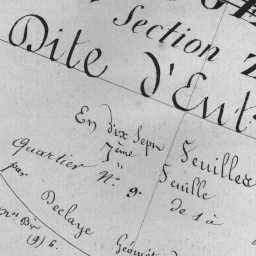 Section
Dite d'Ent
En dix Sept Feuilles
7ème Feuille
Quartier N° 9. de 1 à
par
Declaye
(9) 6.
Géomét